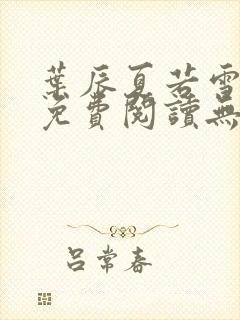 葉辰夏若雪
免費閱讀無
呂常春